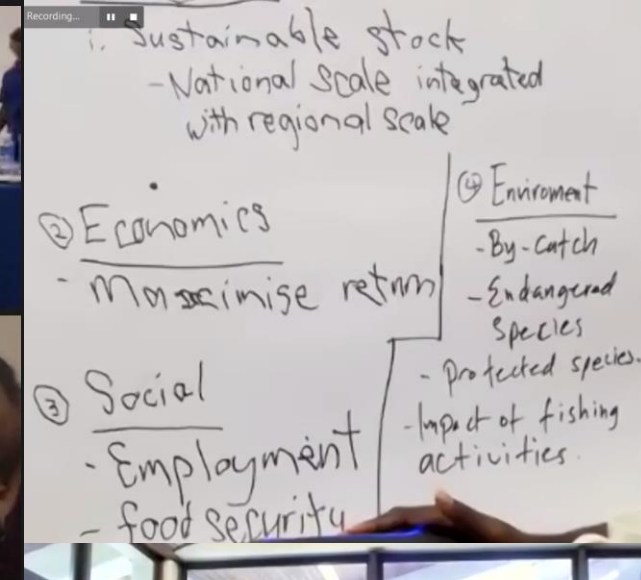 Recording...
i. Sustainable stock
- National scale integrated
with regional scale
② Economics
- Maximise return
③ Social
- Employment
- food security
④ Enviroment
- By-catch
- Endangered
species
- protected species.
- Impact of fishing
activities.